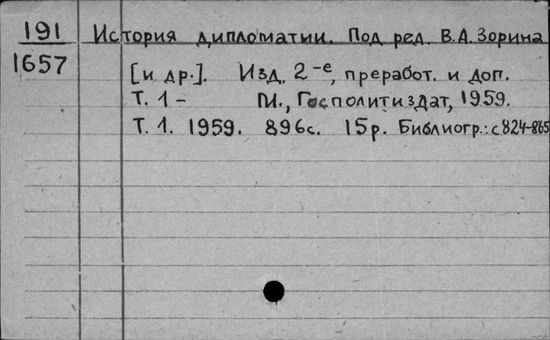 191 История дипломатии. Под ред. В.А. Зорина
1657 [и др.]. Изд. 2-е, преработ. и доп.
Т. 1 - М., Госполитиздат, 1959.
Т. 1. 1959. 896с. 15р. Библиогр.: с 824-865